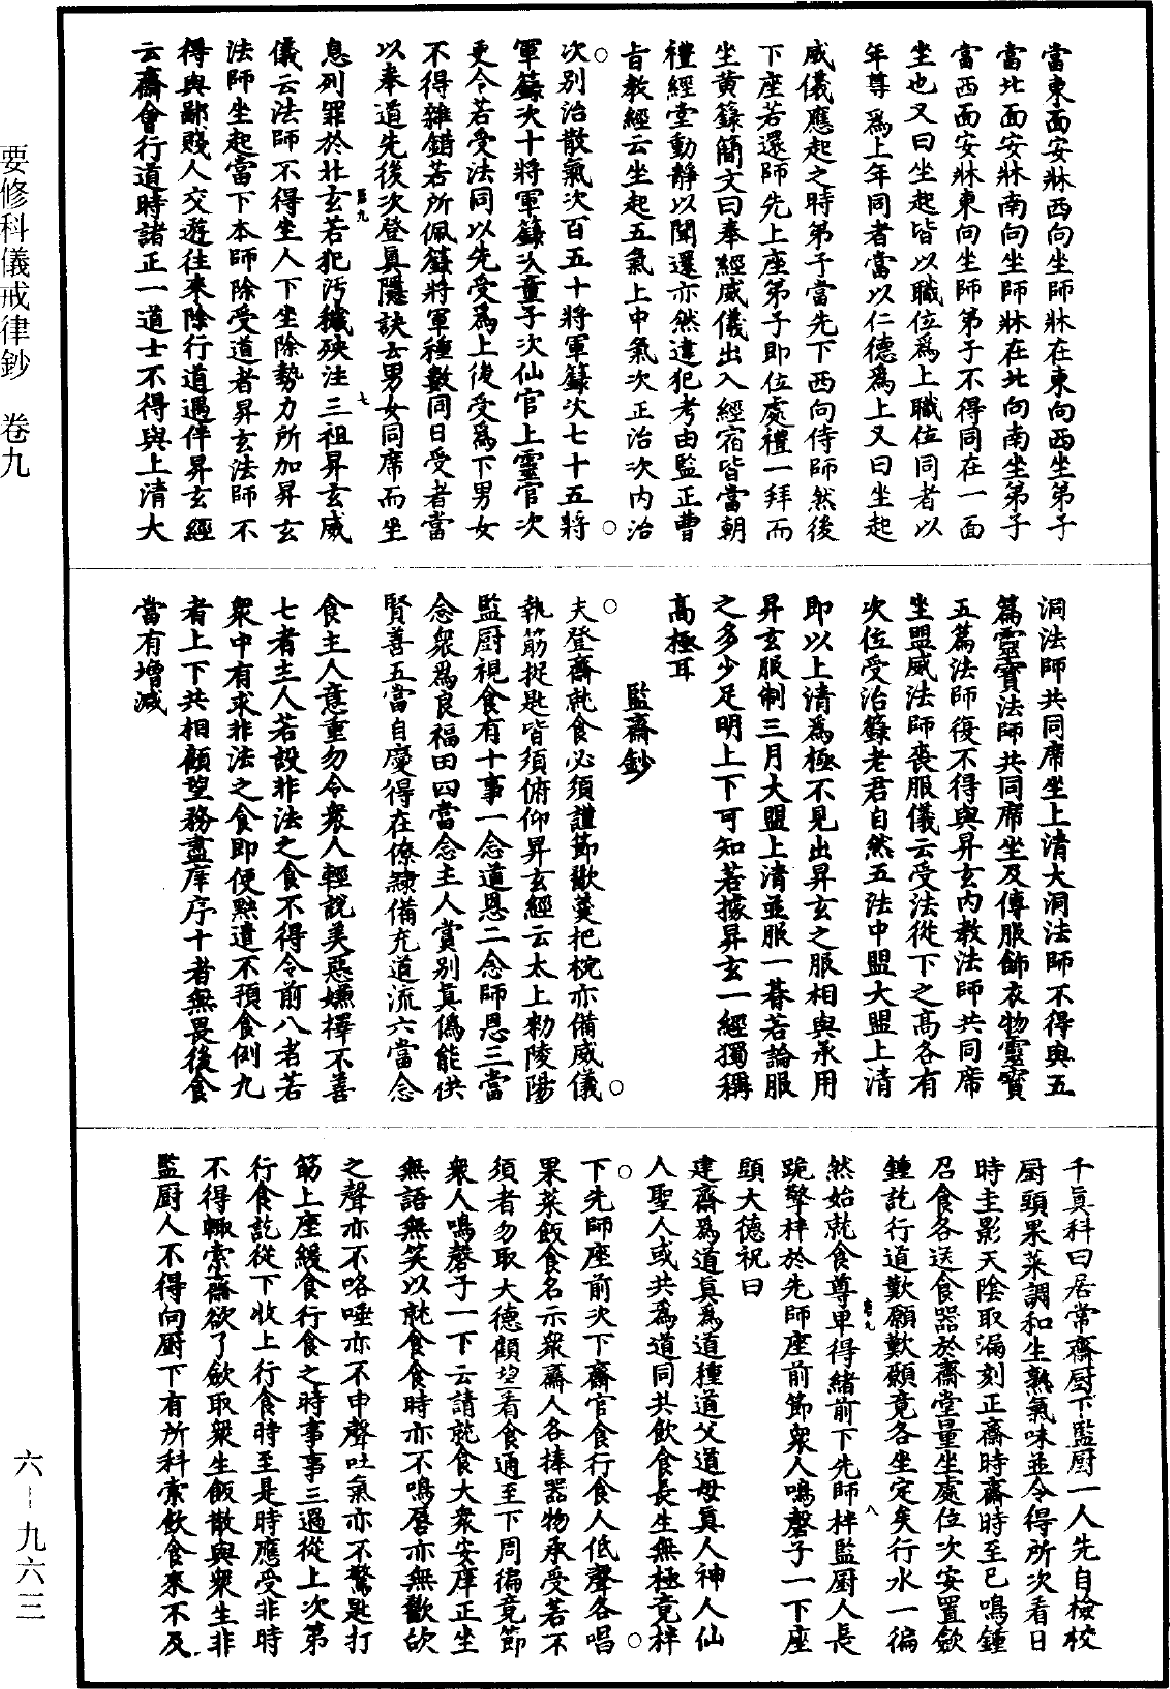 當東面安牀西向坐師牀在東向西坐弟子
當北面安牀南向坐師牀在北向南坐弟子
當西面安牀東向坐師弟子不得同在一面
坐也又曰坐起皆以職位爲上職位同者以
年尊爲上年同者當以仁德爲上又曰坐起
威儀應起之時弟子當先下西向侍師然後
下座若還師先上座弟子即位處禮一拜而
坐黃籙簡文曰奉經威儀出入經宿皆當朝
禮經堂動靜以聞還亦然違犯考由監正曹
旨教經云坐起五氣上中氣次正治次內治
次別治散氣次百五十將軍籙次七十五將
軍籙次十將軍籙次童子次仙官上靈官次
更令若受法同以先受爲上後受爲下男女
不得雜錯若所佩籙將軍種數同日受者當
以奉道先後次登真隱訣云男女同席而坐
息列罪於北玄若犯汚穢殃注三祖昇玄威
儀云法師不得坐人下坐除勢力所加昇玄
法師坐起當下本師除受道者昇玄法師不
得與鄙賤人交遊往來除行道遇伴昇玄經
云齋會行道時諸正一道士不得與上清大
洞法師共同席坐上清大洞法師不得與五
篇靈寶法師共同席坐及傳服飾衣物靈寶
五篇法師復不得與昇玄內教法師共同席
坐盟威法師喪服儀云受法從下之高各有
次位受治籙老君自然五法中盟大盟上清
即以上清爲極不見出昇玄之服相與承用
昇玄服制三月大盟上清並服一朞若論服
之多少足明上下可知若據昇玄一經獨稱
高極耳
監齋鈔
夫登齋就食必須謹節歠羹把椀亦備威儀
執筯捉匙皆須俯仰昇玄經云太上勑陵陽
監厨視食有十事一念道恩二念師恩三當
念衆爲良福田四當念主人賞別真僞能供
賢善五當自慶得在僚隷備充道流六當念
食主人意重勿令衆人輕說美惡嫌擇不善
七者主人若設非法之食不得令前八者若
衆中有求非法之食即便點遣不預食例九
者上下共相顧望務盡庠序十者無畏後食
當有增減
千真科曰居常齋厨下監厨一人先自檢校
厨頭果菜調和生熟氣味並令得所次看日
時圭影天陰取漏刻正齋時齋時至已鳴鍾
召食各送食器於齋堂量坐處位次安置歛
鍾訖行道歎願歎願竟各坐定矣行水一徧
然始就食尊卑得緒前下先師柈監厨人長
跪擎柈於先師座前節衆人鳴磬子一下座
頭大德祝曰
建齋爲道真爲道種道父道母真人神人仙
人聖人或共爲道同共飲食長生無極竟柈
下先師座前次下齋官食行食人低聲各唱
果菜飯食名示衆齋人各捧器物承受若不
須者勿取大德顧望看食通至下周徧竟節
衆人鳴磬子一下云請就食大衆安庠正坐
無語無笑以就食食時亦不鳴唇亦無歠㰦
之聲亦不咯唾亦不申聲吐氣亦不驚匙打
筯上座緩食行食之時事事三過從上次第
行食訖從下收上行食時至是時應受非時
不得輙索齋欲了歛取衆生飯散與衆生非
監厨人不得向厨下有所科索飲食來不及
第九
七
第九
八
要修科儀戒律鈔　卷九
六－九六三